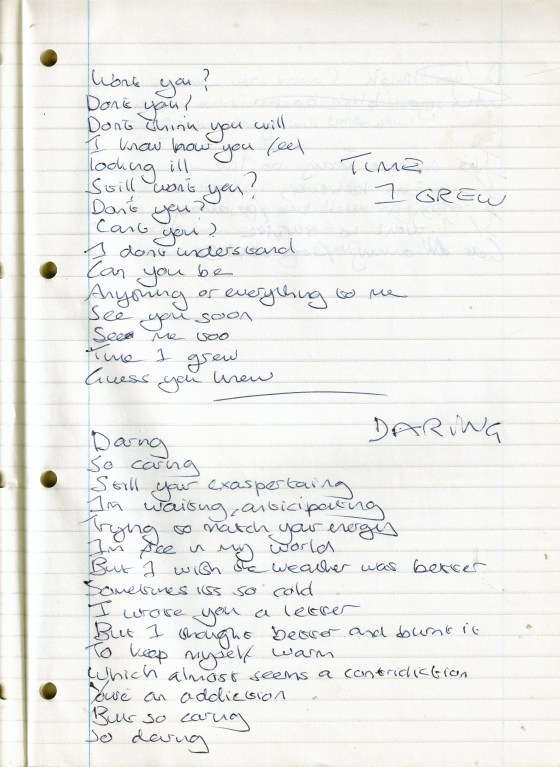 Wont you?
Dont you?
Dont think you will
I know how you feel
looking ill
TIME
I GREW
Still wont you?
Dont you?
Cant you?
I dont understand
Can you be
Anything or everything to me
See you soon
See me too
Time I grew
Guess you knew
DARING
Daring
So caring
Still your exaspertaing
Im waiting, anticipating
Trying to match your energy
Im free in my world
But I wish the weather was better
Sometimes its so cold
I wrote you a letter
But I thought better and burnt it
To keep myself warm
Which almost seems a contridiction
Your an addiction
But so caring
So daring